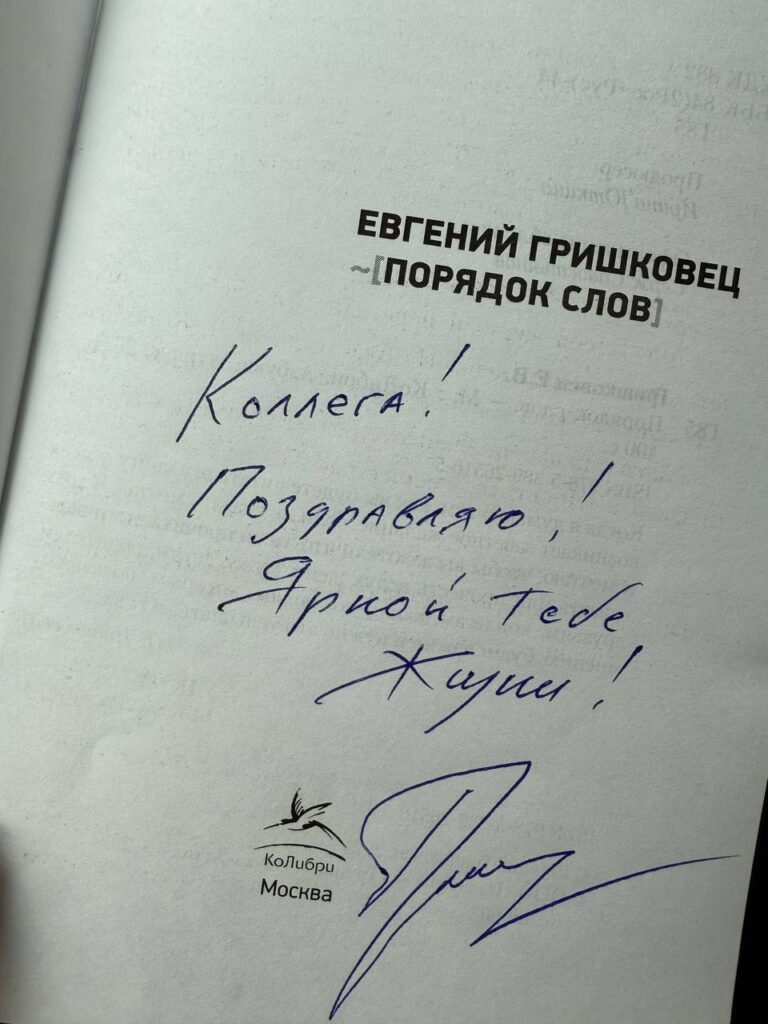 ЕВГЕНИЙ ГРИШКОВЕЦ
~[ПОРЯДОК СЛОВ]
Коллега!
Поздравляю!
Яркой тебе
Жизни!
КоЛибри
Москва